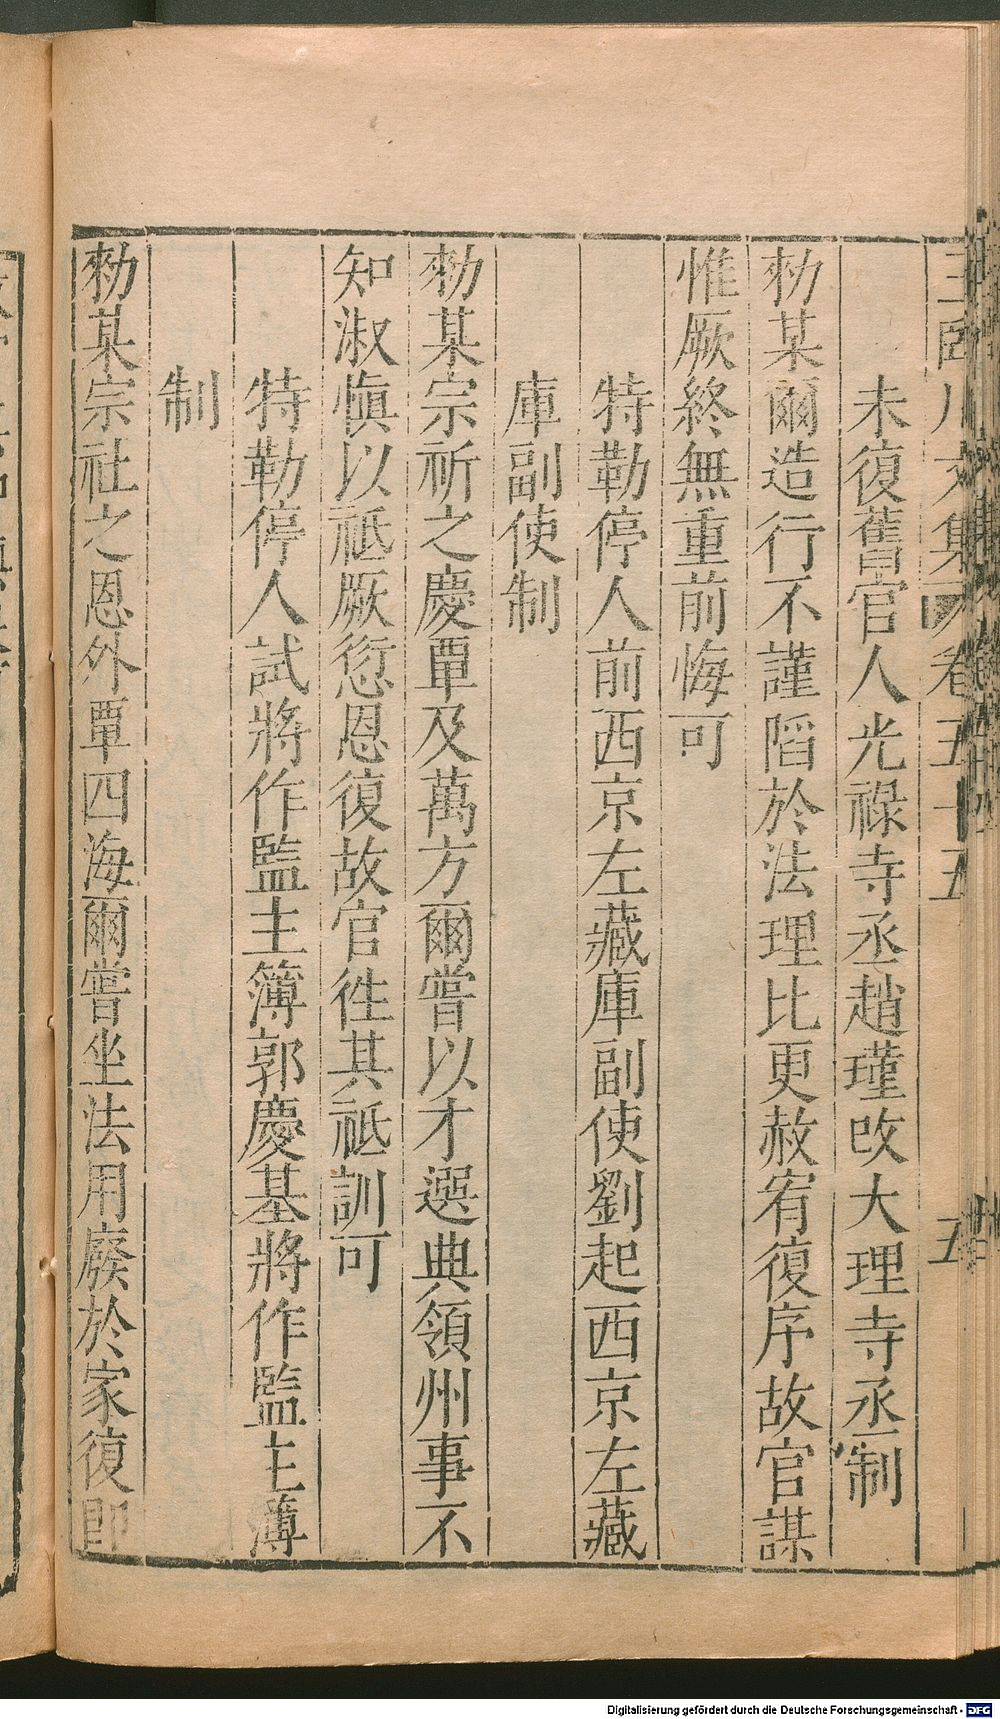 王臨川文集 卷五十五 五
未復舊官人光祿寺丞趙瑾改大理寺丞制
勑某爾造行不謹陷於法理比更赦宥復序故官謀
惟厥終無重前悔可
特勒停人前西京左藏庫副使劉起西京左藏
庫副使制
勑某宗祈之慶覃及萬方爾嘗以才選典領州事不
知淑愼以祗厥愆恩復故官徃其祗訓可
特勒停人試將作監主簿郭慶基將作監主簿
制
勑某宗社之恩外覃四海爾嘗坐法用廢於家復卽
Digitalisierung gefördert durch die Deutsche Forschungsgemeinschaft - DFG